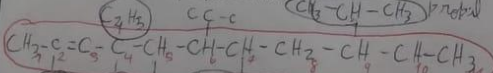 C₂H₅ C-C-C CH₃-CH-CH₃ propil
CH₃-C=C₃-C-CH₅-CH-CH-CH₂-CH-CH-CH₃
1 2 4 8 9 10